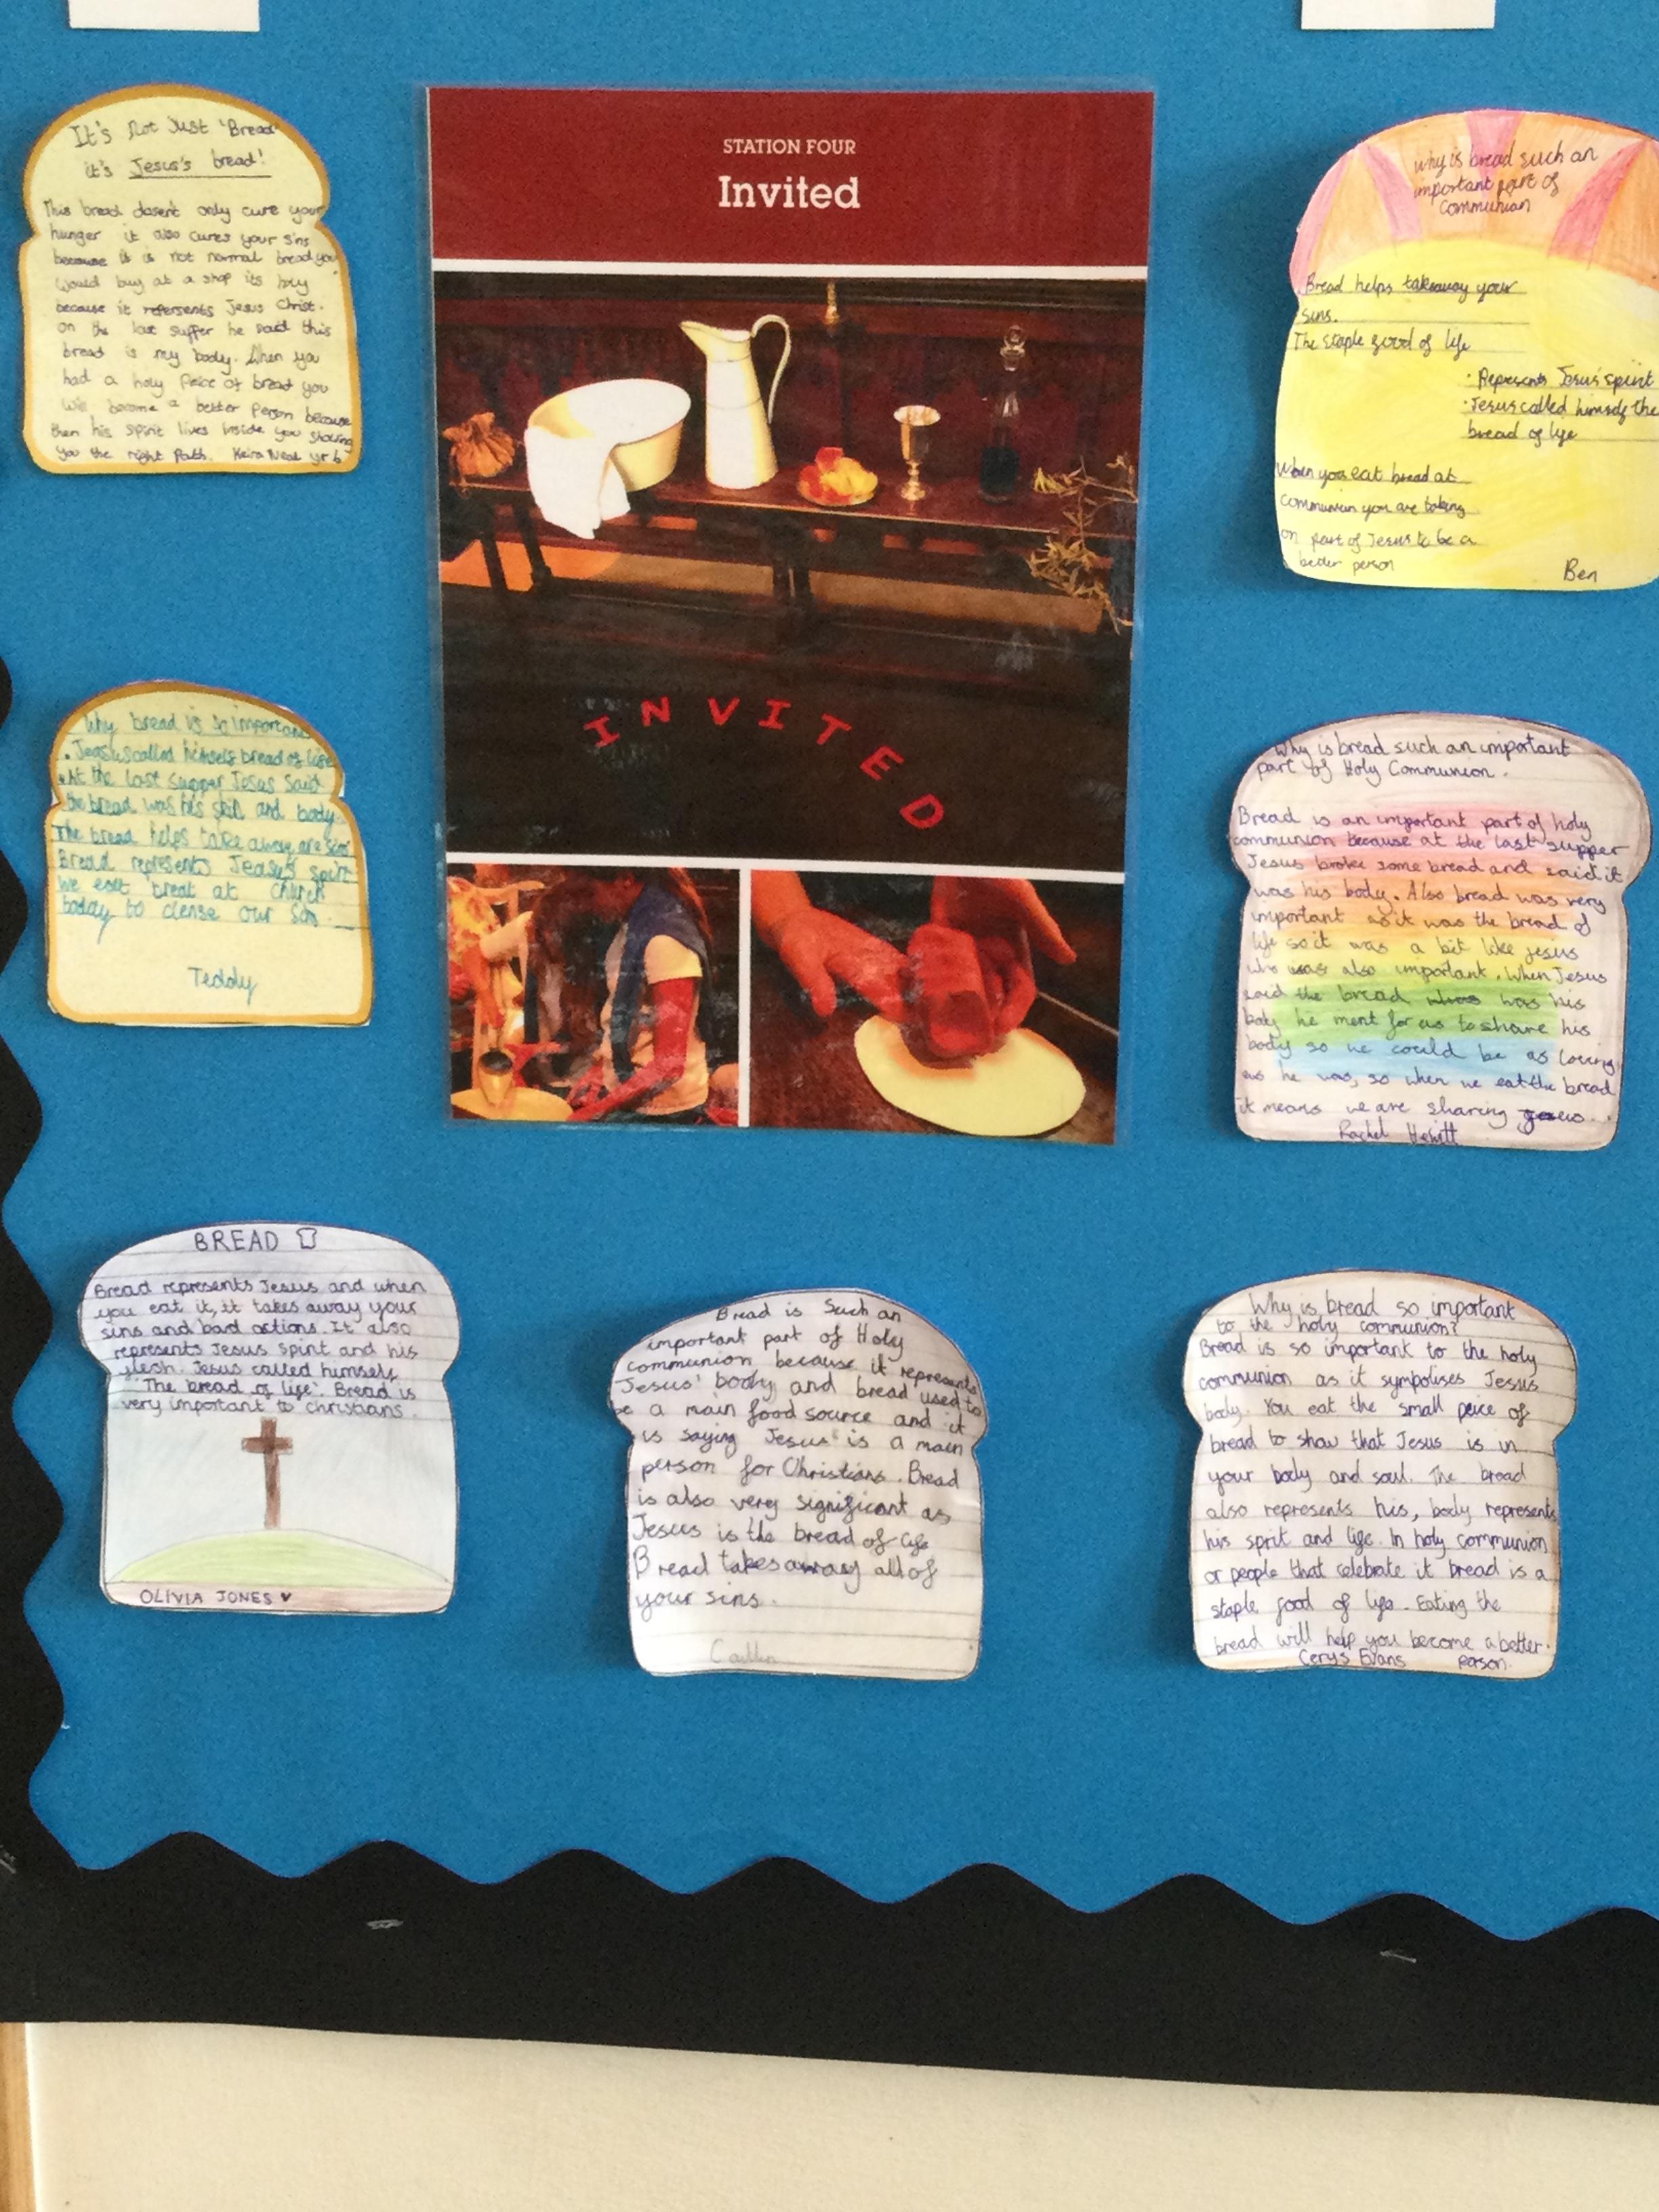 It's Not Just 'Bread'
it's Jesus's bread!
This bread dosent only cure your
hunger it also cures your sins
because it is not normal bread you
would buy at a shop its holy
because it refersents Jesus Christ.
on the last suffer he said this
bread is my body. When you
had a holy Peice of bread you
will become a better person because
then his spirit lives inside you showing
you the right Path. Keira Neal yr 6
STATION FOUR
Invited
INVITED
why is bread such an
important part of
communian
Bread helps takeaway your
sins.
The staple food of life
· Represents Jesus' spirit
· Jesus called himself the
bread of life
When you eat bread at
communian you are taking
on part of Jesus to be a
better person
Ben
Why bread is so important
. Jeasus called himself bread of life
. At the last supper Jesus said
the bread was his skin and body.
The bread helps take away are sins
Bread represents Jeasus spirit
We eat breat at church
today to clense our sins
Teddy
Why is bread such an important
part of Holy Communion.
Bread is an important part of holy
communion because at the last supper
Jesus broke some bread and said it
was his body. Also bread was very
important as it was the bread of
life so it was a bit like jesus
who was also important. When Jesus
said the bread was his
body he ment for us to share his
body so we could be as loving
as he was, so when we eat the bread
it means we are sharing
Rachel Hewitt
BREAD
Bread represents Jesus and when
you eat it, it takes away your
sins and bad actions. It also
represents Jesus spirit and his
flesh. Jesus called himself
'The bread of life'. Bread is
very important to christians.
OLIVIA JONES ♥
Bread is Such an
important part of Holy
communion because it represents
Jesus' body and bread used to
be a main food source and it
is saying Jesus is a main
person for Christians. Bread
is also very significant as
Jesus is the bread of life
Bread takes away all of
your sins.
Caitlin
Why is bread so important
to the holy communion?
Bread is so important to the holy
communion as it sympolises Jesus
body. You eat the small peice of
bread to show that Jesus is in
your body and soul. The bread
also represents his, body represents
his sprit and life. In holy communion
or people that celebrate it bread is a
staple food of life. Eating the
bread will help you become a better.
Cerys Evans person.